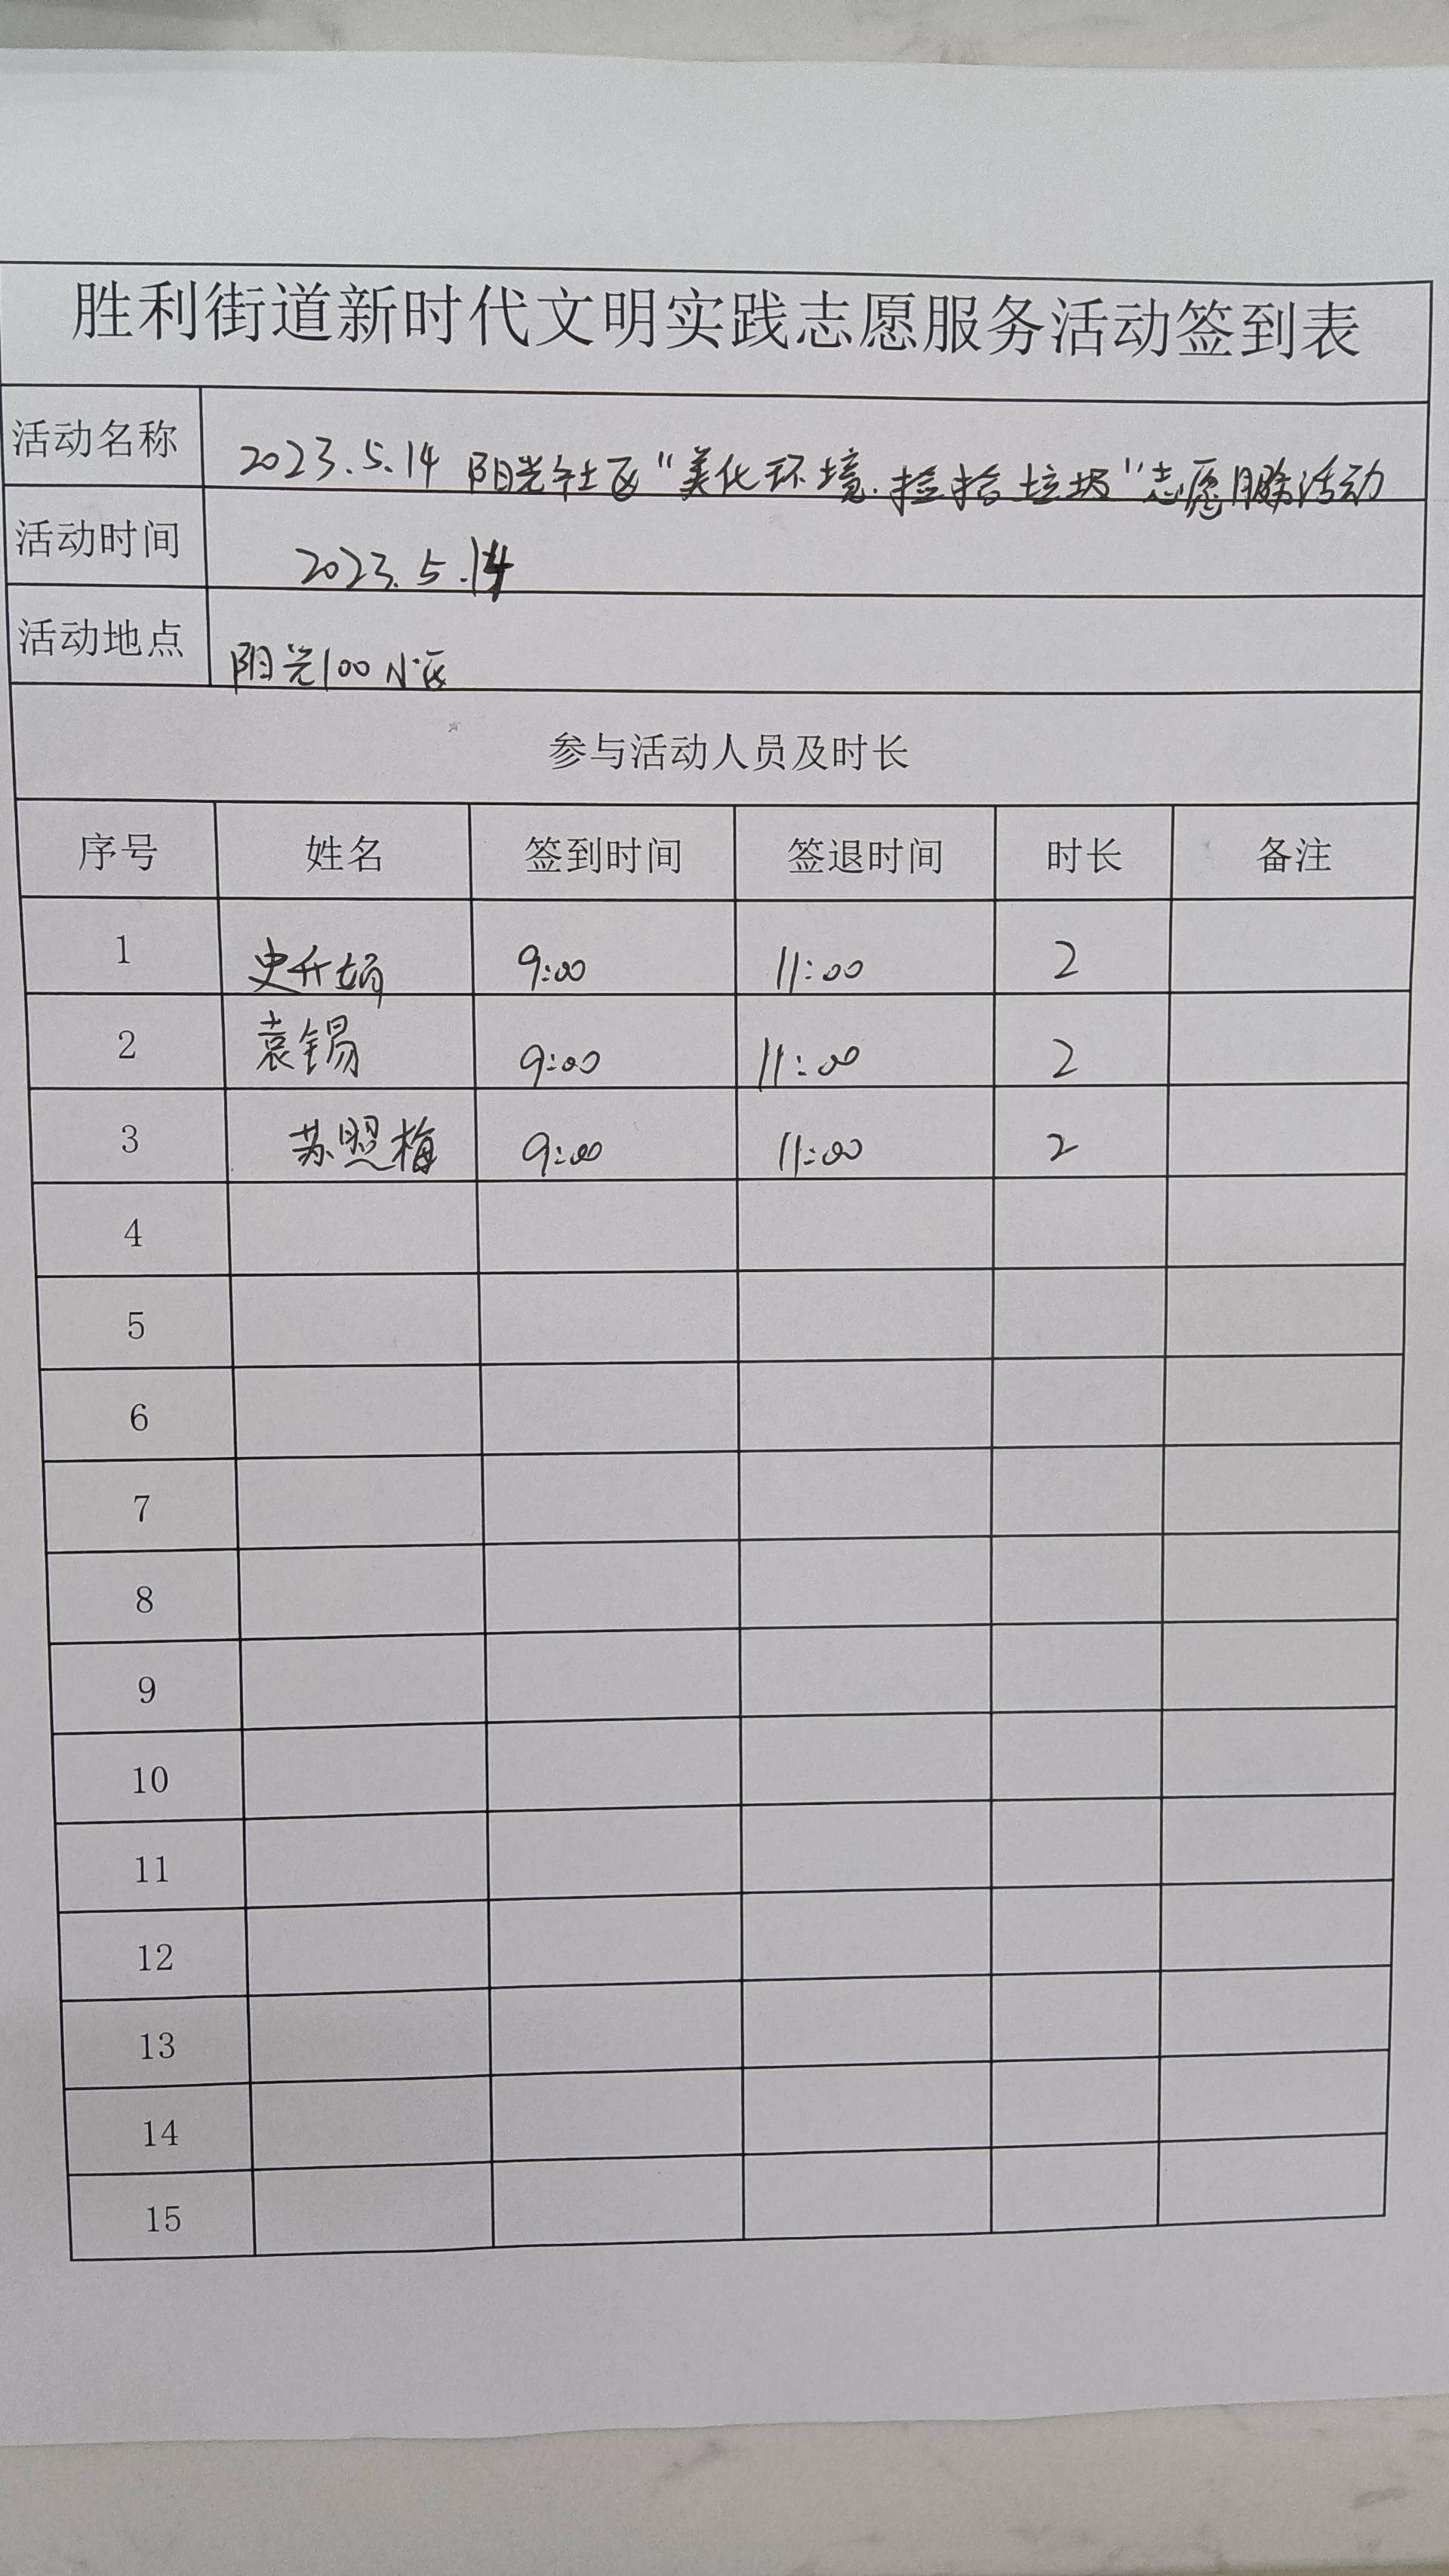 胜利街道新时代文明实践志愿服务活动签到表
活动名称 2023.5.14 阳光社区"美化环境.捡拾垃圾"志愿服务活动
活动时间 2023.5.14
活动地点 阳光100小区
参与活动人员及时长
序号 姓名 签到时间 签退时间 时长 备注
1 史升娟 9:00 11:00 2
2 袁锡 9:00 11:00 2
3 苏照梅 9:00 11:00 2
4
5
6
7
8
9
10
11
12
13
14
15